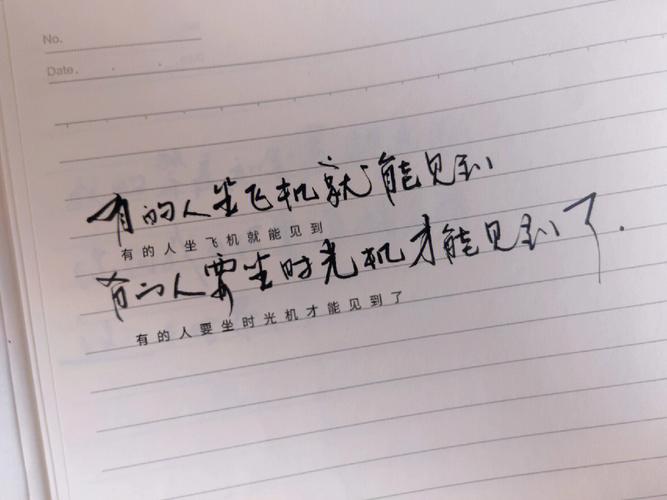 No.
Date.
有的人坐飞机就能见到
有的人坐飞机就能见到
有的人要坐时光机才能见到了.
有的人要坐时光机才能见到了